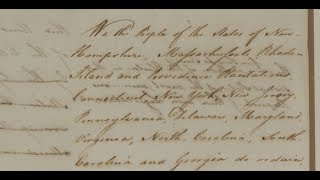 We the People of the States of New-
Hampshire Massachusetts Rhode
Island and Providence Plantations,
Connecticut New York New Jersey
Pennsylvania, Delaware, Maryland
Virginia, North-Carolina, South
Carolina and Georgia do ordain,